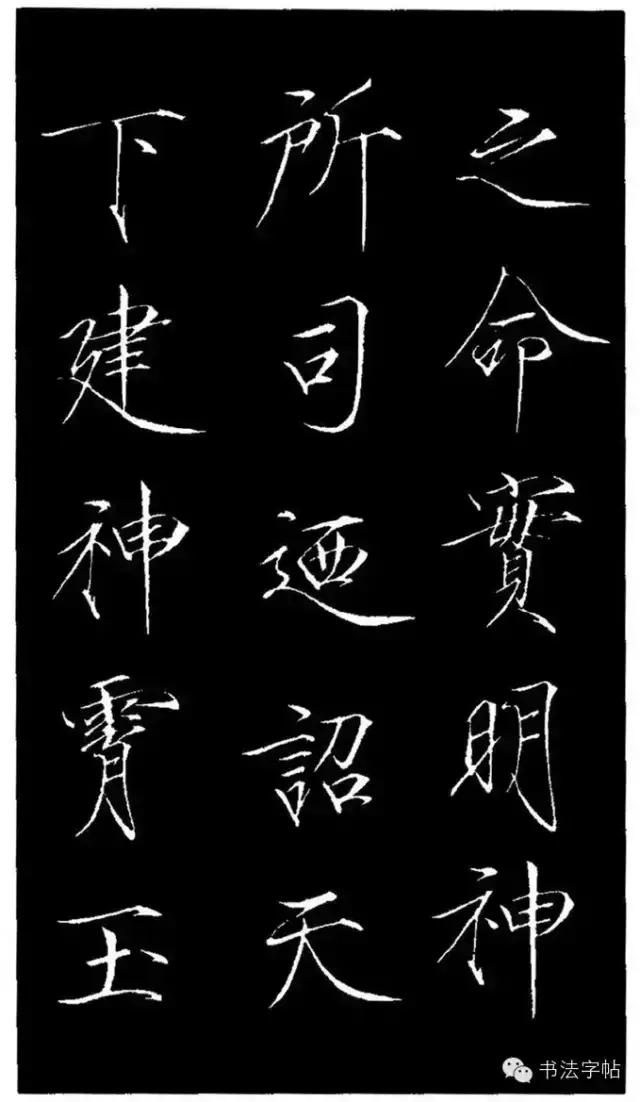 之命實明神
所司迺詔天
下建神霄玉
书法字帖